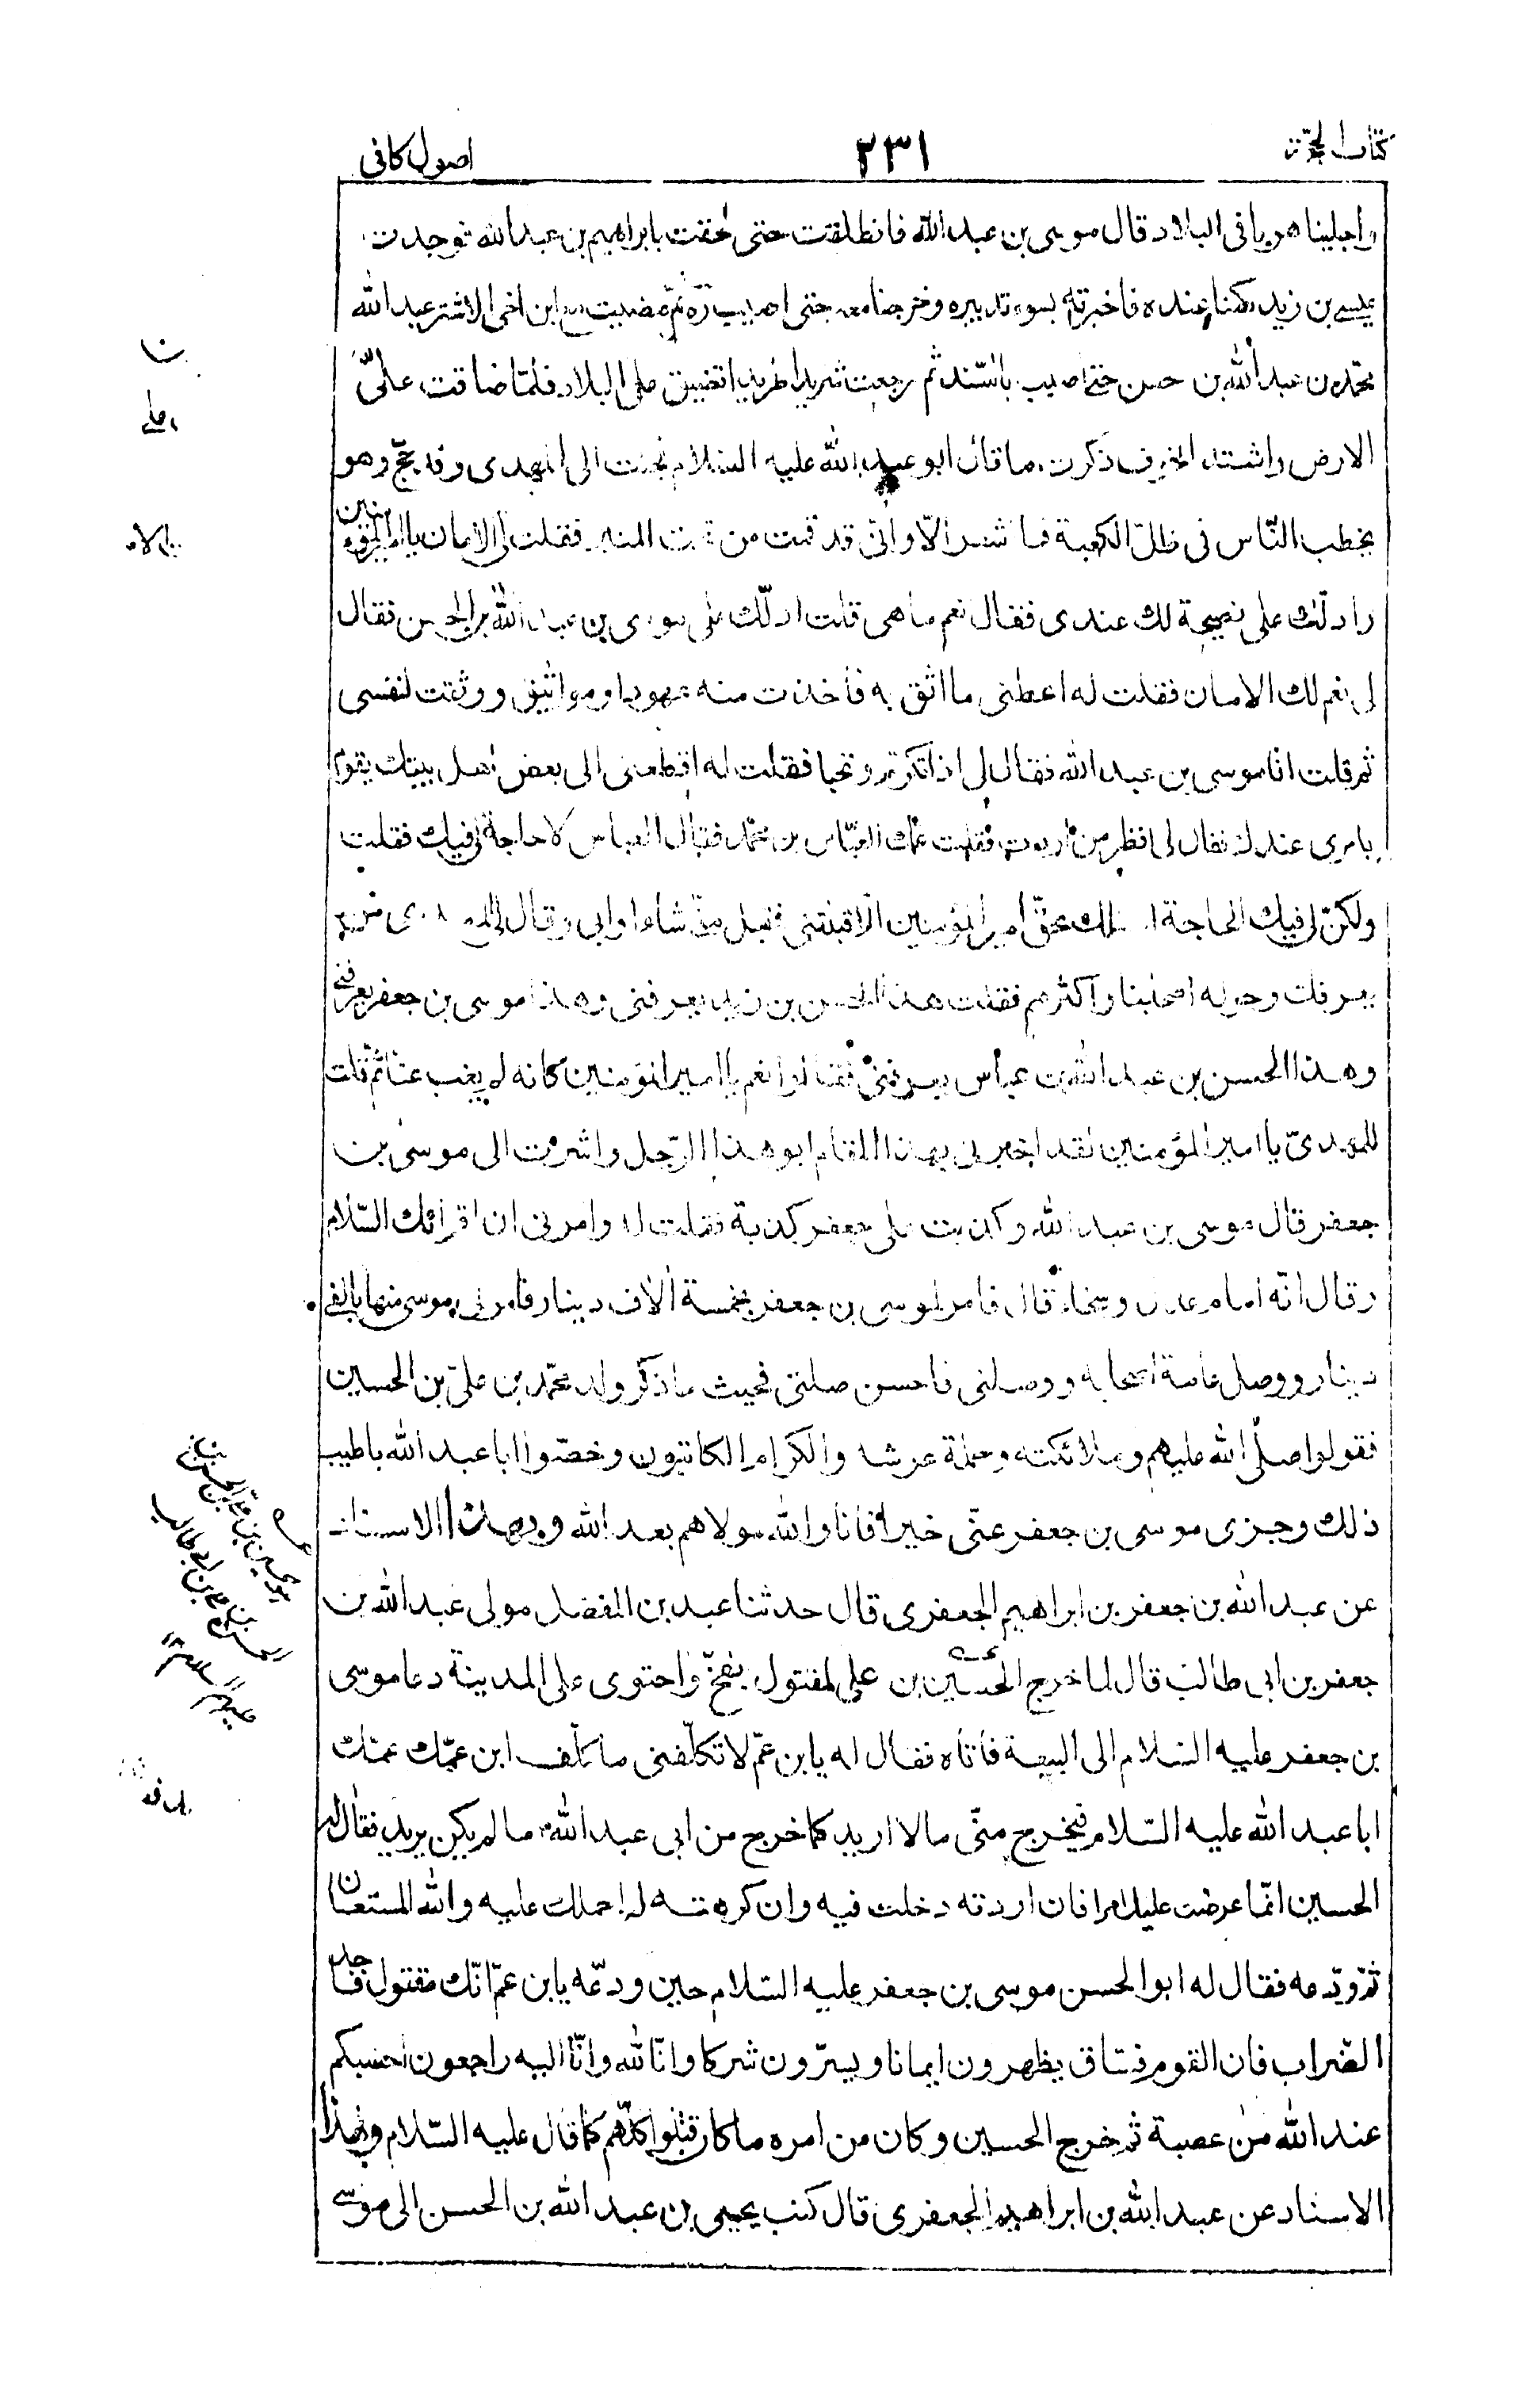 كتاب الحجة
٢٣١
اصول كافى
واجلينا هربا فى البلاد قال موسى بن عبد الله فانطلقت حتى لحقت بابراهيم بن عبد الله فوجدت
عيسى بن زيد مكمنا عنده فاخبرته بسوء تدبيره وخرجنا معه حتى اصيب ره ثم مضيت مع ابن اخى الاشتر عبد الله
محمد بن عبد الله بن حسن حتى اصيب بالسند ثم رجعت شريدا طريدا تضيق على البلاد فلما ضاقت علىّ
الارض واشتد الخوف ذكرت ما قال ابو عبد الله عليه السلام فجئت الى المهدى وقد حج وهو
يخطب الناس فى ظل الكعبة فما شعر الّا وانى قد قمت من تحت المنبر فقلت لى الامان يا امير المؤمنين
وادلك على نصيحة لك عندى فقال نعم ما هى قلت ادلّك على موسى بن عبد الله بن الحسن فقال
لى نعم لك الامان فقلت له اعطنى ما اثق به فاخذت منه عهودا ومواثيق ووثقت لنفسى
ثم قلت انا موسى بن عبد الله فقال لى اذا تكرم وتحبا فقلت له اقطعنى الى بعض اهل بيتك يقوم
بامرى عندك فقال لى انظر من اردت فقلت عمك العبّاس بن محمد فقال العباس لا حاجة لى فيك فقلت
ولكن لى فيك الحاجة اسئلك بحق امير المؤمنين الّا قبلتنى فقبلنى شاء او ابى وقال لى المهدى من
يعرفك وحوله اصحابنا او اكثرهم فقلت هذا الحسن بن زيد يعرفنى وهذا موسى بن جعفر يعرفنى
وهذا الحسن بن عبد الله بن عباس يعرفنى فقالوا نعم يا امير المؤمنين كانه لم يغب عنا ثم قلت
للمهدىّ يا امير المؤمنين لقد اخبرنى بهذا المقام ابو هذا الرّجل واشرت الى موسى بن
جعفر قال موسى بن عبد الله وكذبت على جعفر كذبة فقلت له وامرنى ان اقرئك السّلام
وقال انّه امام عدل وسخاء قال فامر لموسى بن جعفر بخمسة آلاف دينار فامر لى موسى منها بالفى
دينار ووصل عامة اصحابه ووصلنى فاحسن صلتى فحيث ما ذكر ولد محمّد بن علىّ بن الحسين
فقولوا صلّى الله عليهم وملائكته وحملة عرشه والكرام الكاتبون وخصّوا ابا عبد الله باطيب
ذلك وجزى موسى بن جعفر عنّى خيرا فانا والله مولاهم بعد الله وبهذا الاسناد
عن عبد الله بن جعفر بن ابراهيم الجعفرى قال حدثنا عبد بن المفضل مولى عبد الله بن
جعفر بن ابى طالب قال لما خرج الحسين بن على المقتول بفخّ واحتوى على المدينة دعا موسى
بن جعفر عليه السلام الى البيعة فاتاه فقال له يا بن عمّ لا تكلّفنى ما كلّف ابن عمّك عمّك
ابا عبد الله عليه السّلام فيخرج منّى ما لا اريد كما خرج من ابى عبد الله ما لم يكن يريد فقال له
الحسين انّما عرضت عليك امرا فان اردته دخلت فيه وان كرهته لم احملك عليه والله المستعان
ثم ودعه فقال له ابو الحسن موسى بن جعفر عليه السّلام حين ودّعه يا بن عمّ انّك مقتول فاجد
الضراب فان القوم فسّاق يظهرون ايمانا ويسرّون شركا وانّا لله وانّا اليه راجعون احتسبكم
عند الله من عصبة ثم خرج الحسين وكان من امره ما كان قتلوا كلّهم كما قال عليه السّلام وبهذا
الاسناد عن عبد الله بن ابراهيم الجعفرى قال كتب يحيى بن عبد الله بن الحسن الى موسى